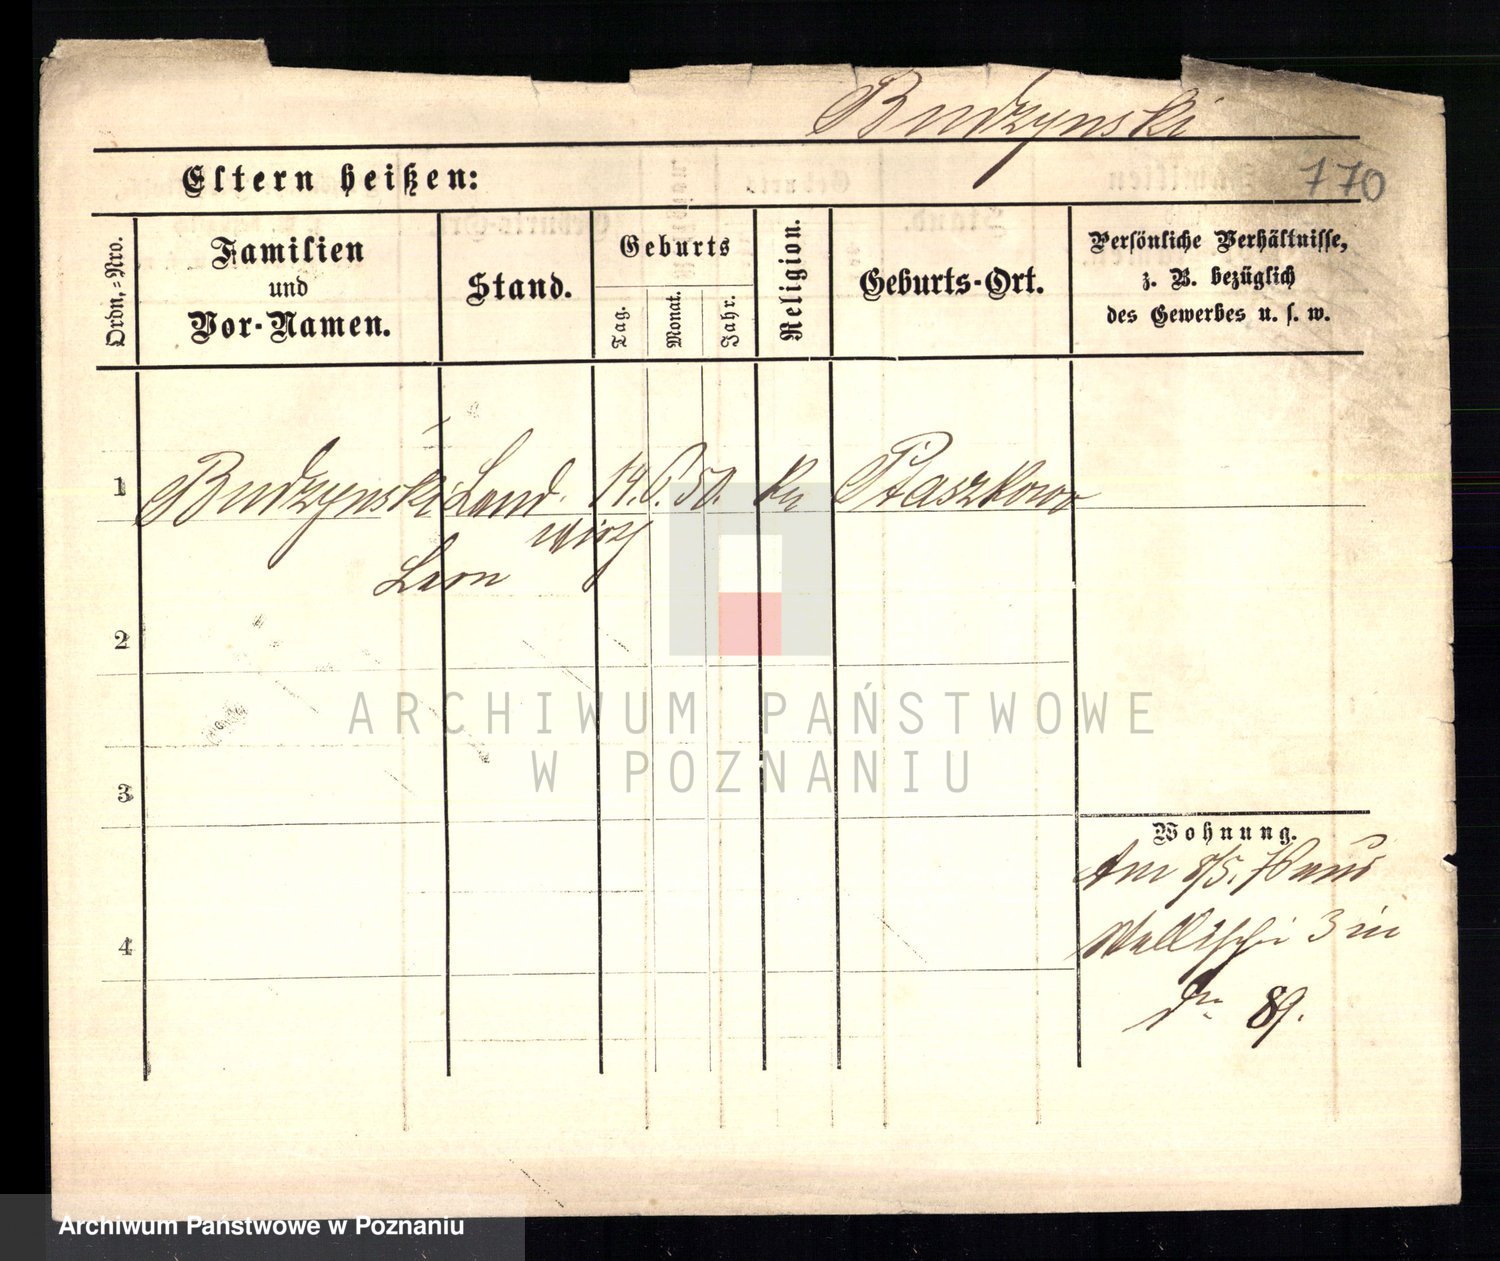 Budzynski
770
Eltern heißen:
Ordn.-Nro.
Familien
und
Vor-Namen.
Stand.
Geburts
Tag.
Monat.
Jahr.
Religion.
Geburts-Ort.
Persönliche Verhältnisse,
z. B. bezüglich
des Gewerbes u. s. w.
1 Budzynski Land- 14. 6. 50. Ptaszkowo
Leon
2
3
4
Wohnung.
Am 8/5.
Wallischei 3 in
89.
ARCHIWUM PAŃSTWOWE
W POZNANIU
Archiwum Państwowe w Poznaniu